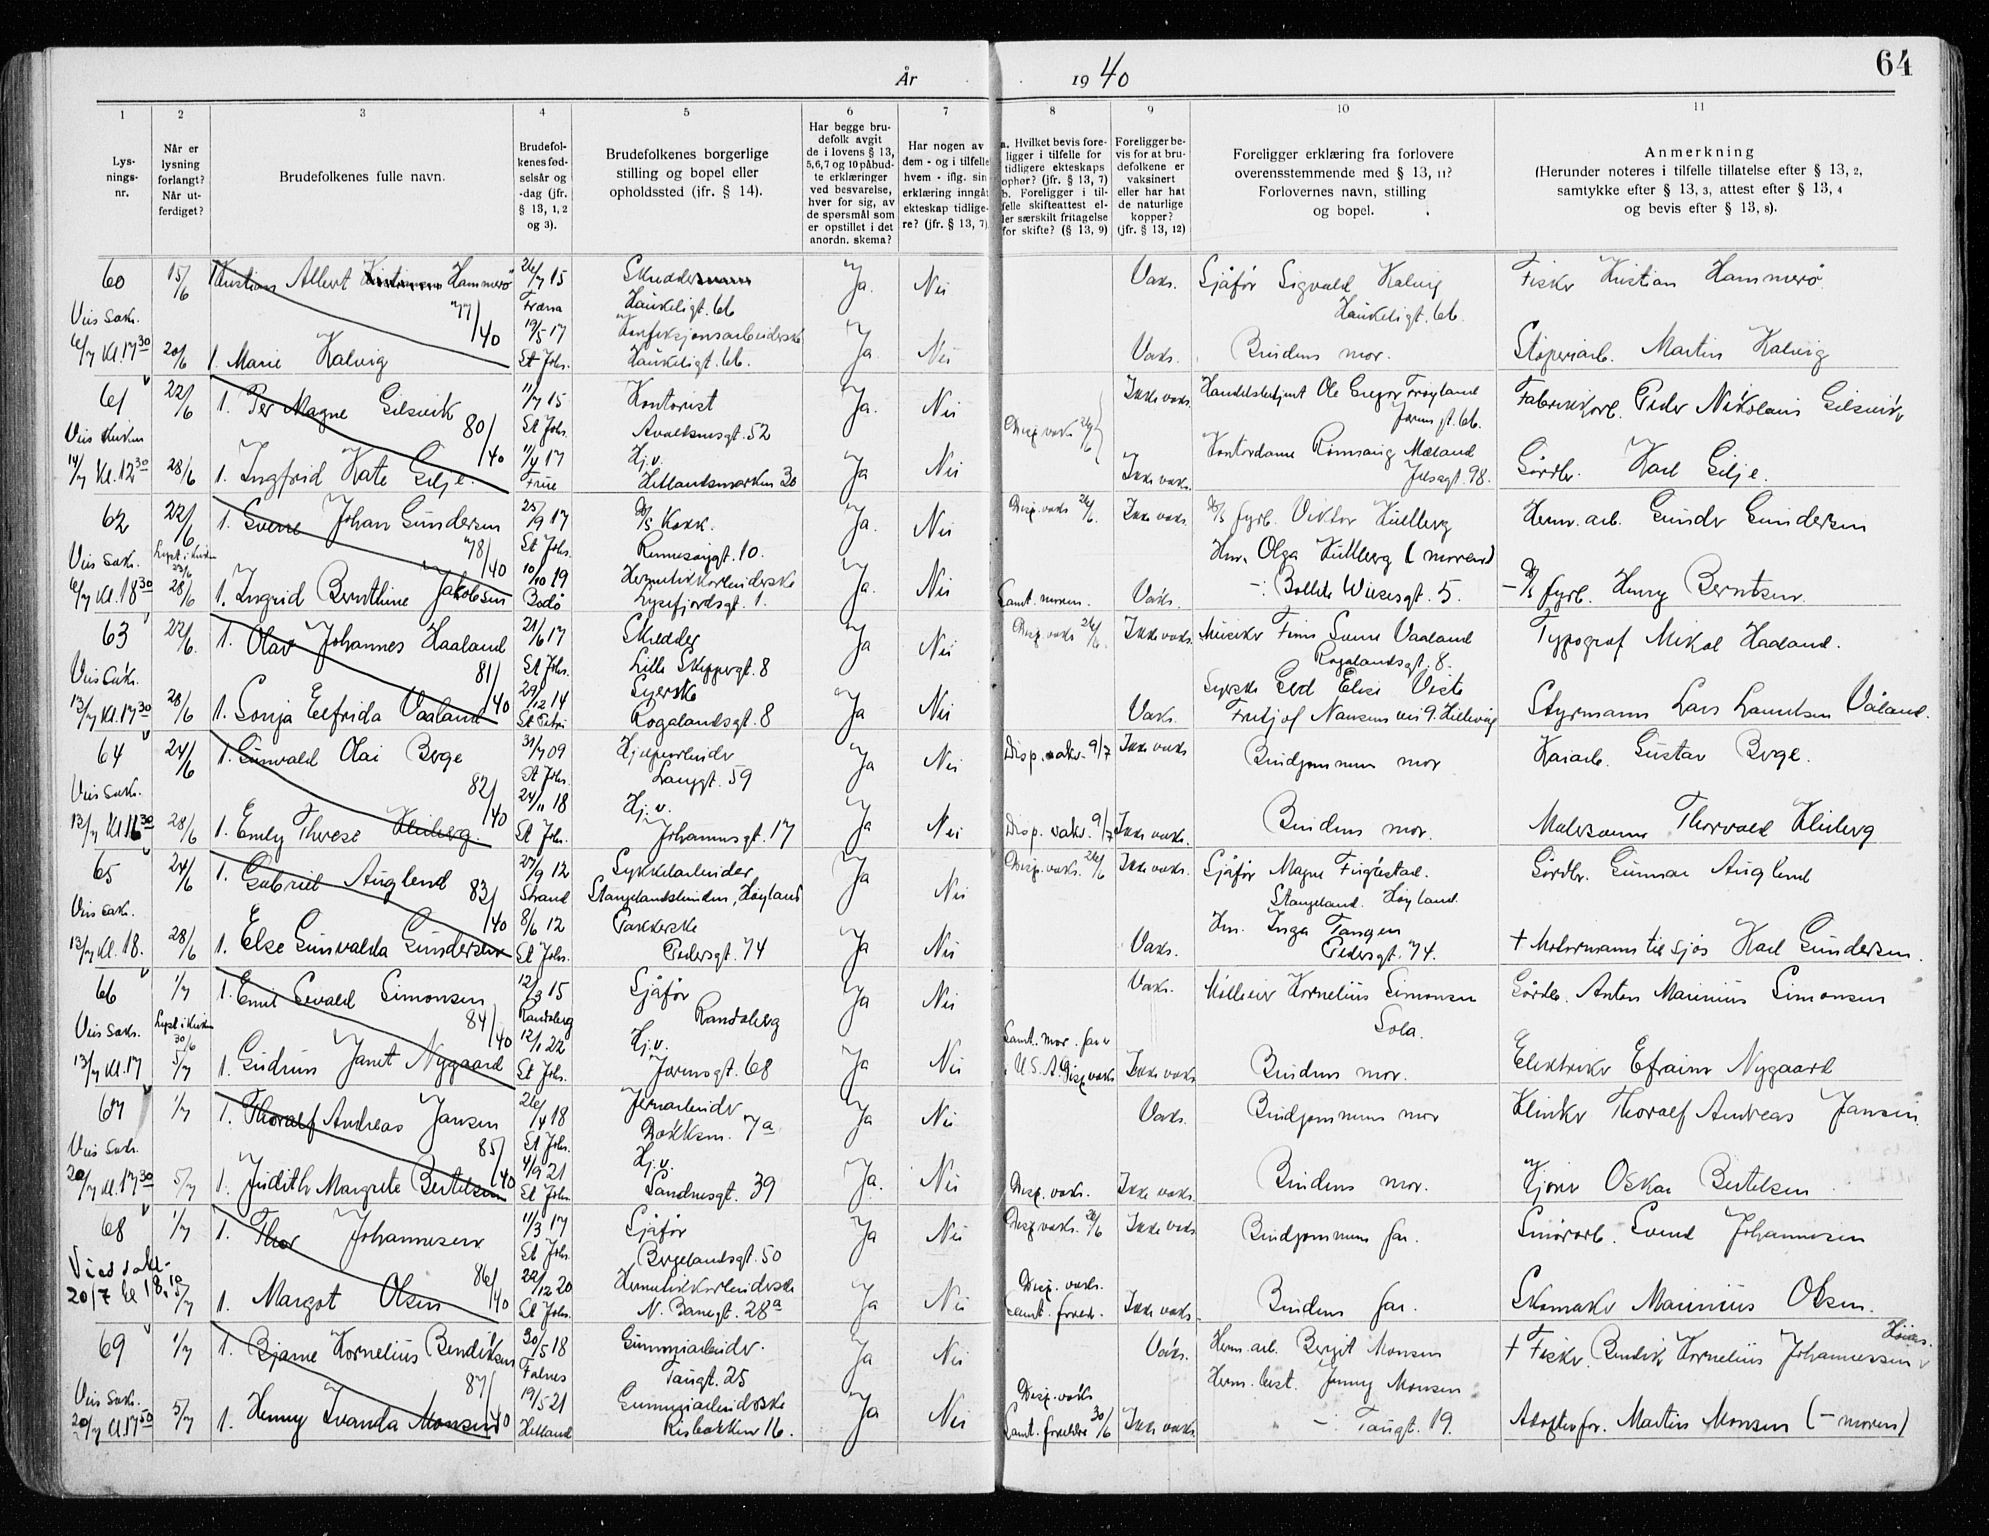 År 1940
64
1 2 3 4 5 6 7 8 9 10 11
Lysningsnr.
Når er lysning forlangt? Når utferdiget?
Brudefolkenes fulle navn.
Brudefolkenes fødselsår og -dag (jfr. § 13, 1, 2 og 3).
Brudefolkenes borgerlige stilling og bopel eller opholdssted (jfr. § 14).
Har begge brudefolk avgit de i lovens § 13, 5,6,7 og 10 påbudte erklæringer ved besvarelse, hver for sig, av de spørsmål som er opstillet i det anordn. skema?
Har nogen av dem - og i tilfelle hvem - iflg. sin erklæring inngåt ekteskap tidligere? (jfr. § 13, 7)
a. Hvilket bevis foreligger i tilfelle for tidligere ekteskaps ophør? (jfr. § 13, 7) b. Foreligger i tilfelle skifteattest eller særskilt fritagelse for skifte? (§ 13, 9)
Foreligger bevis for at brudefolkene er vaksinert eller har hat de naturlige kopper? (jfr. § 13, 12)
Foreligger erklæring fra forlovere overensstemmende med § 13, 11? Forlovernes navn, stilling og bopel.
Anmerkning (Herunder noteres i tilfelle tillatelse efter § 13, 2, samtykke efter § 13, 3, attest efter § 13, 4 og bevis efter § 13, 8).
60 15/6 Kristian Albert Hammerø 26/7 15 Skredder Ja. Nei Vaks. Sjåfør Sigvald Kalvig Fisker Kristian Hammerø
Viis Sakr. 77/40 Fræna Haukeligt. 6b Haukeligt. 6b.
6/7 Kl. 17 30 20/6 1. Marie Kalvig 19/5 17 St Johs. Konfeksjonsarbeiderske Haukeligt. 6b. Ja. Nei Vaks. Brudens mor. Støperiarb. Martin Kalvig
61 22/6 1. Per Magne Gilsvik 11/7 15 Kontorist Ja. Nei Ikke vaks. Handelsbetjent Ole Inge Frøyland Fabrikkarb. Peder Nikolaus Gilsvik
Viis Kirken 80/40 St Johs. Avaldsnesgt. 52 Disp. vaks 26/6 Jærns gt. 6b.
14/7 Kl. 12 30 28/6 1. Ingfrid Kate Gilje. 11/4 17 Hj.v. Hetlandsmarken 30 Ja Nei Ikke vaks. Kontordame Rønnaug Mæland 98. Gårdbr. Karl Gilje.
62 22/6 1. Sverre Johan Gundersen 25/9 17 D/S Kokk. Ja. Nei Disp. vaks 26/6. Ikke vaks. D/S fyrb. Viktor Kullberg Herm. arb. Gunder Gundersen
Viis Sakr. Lyst i Kirken 23/6 78/40 St Johs. Rennesøygt. 10. Hm. Olga Kullberg (moren)
6/7 Kl. 18 30 28/6 1. Ingrid Bernthine Jakobsen 10/10 19 Bodø Hermetikkarbeiderske Lysefjordsgt. 1. Ja. Nei Samt. moren. Vaks. -:- Bollete Wiesesgt. 5. -D/S fyrb. Henry Berntsen.
63 22/6. 1. Olav Johannes Haaland 21/6 17 Skredder Ja Nei Disp. vaks 26/6. Ikke vaks. Musiker Finn Sverre Vaaland Typograf Mikal Haaland.
Viis Sakr. 81/40 St Johs. Lille Skippergt. 8 Rogalandsgt. 8.
13/7 Kl. 17 30 28/6 1. Sonja Elfrida Vaaland 29/12 14 St Petri Syerske Rogalandsgt. 8 Ja Nei Vaks. Syerske Elise Viste Fritjof Nansens vei 9. Hillevåg Styrmann Lars Lauritsen Våland.
64 24/6 1. Gunvald Olai Berge 31/7 09 Hjelpearbeider Ja Nei Disp. vaks. 9/7 Ikke vaks. Brudgommens mor Kaiarb. Gustav Berge.
Viis Sakr. 82/40 St Johs. Langgt. 59
13/7 Kl 16 30 28/6 1. Emly Therese Kleiberg. 24/11 18 St Johs. Hj.v. Johannesgt. 17 Ja Nei Disp. vaks. 9/7 Ikke vaks. Brudens mor. Malersvenn Thorvald Kleiberg
65 24/6 1. Gabriel Auglend 27/9 12 Sykkelarbeider Ja Nei Disp. vaks. 26/6 Ikke vaks. Sjåfør Magne Fuglestad. Gårdbr. Gunnar Auglend
Viis Sakr. 83/40 Strand Stangelandslunden, Høyland Stangeland. Høyland
13/7 Kl. 18. 28/6 1. Else Gunvalda Gundersen 8/6 12 St Johs. Pakkerske Pedersgt. 74 Ja Nei Vaks. Hm. Inga Tangen Pedersgt. 74. + Motormann til sjøs Karl Gundersen.
66 1/7 1. Emil Sevald Simonsen 12/3 15 Sjåfør Ja Nei Vaks. Milleier Kornelius Simonsen Gårdbr. Anton Marinius Simonsen
Viis Sakr. Lyst i Kirken 30/6 84/40 Randaberg Randaberg Sola.
13/7 Kl. 17 5/7 1. Gudrun Janet Nygaard 12/1 22 St Johs. Hj.v. Jærnsgt. 68 Ja Nei Samt. mor. far i U.S.A. Disp. vaks Ikke vaks Brudens mor. Elektriker Efraim Nygaard
67 1/7 1. Thoralf Andreas Jansen 26/4 18 Jernarbeider Ja Nei Vaks. Brudgommens mor Klinker Thoralf Andreas Jansen.
Viis Sakr. 85/40 St Johs. Dokksm. 7a
20/7 Kl. 17 30 5/7 1. Judith Margrete Bertelsen 4/9 21 St Johs. Hj.v. Sandnesgt. 39 Ja. Nei Disp. vaks. Ikke vaks. Brudens mor. Kjører Oskar Bertelsen
68 1/7 1. Thor Johannesen 11/3 17 Sjåfør Ja Nei Disp vaks. 26/6 Ikke vaks Brudgommens far. Snørarb. Svend Johannesen
Vied sakr. 20/7 kl 18.10 86/40 St Johs. Bergelandsgt. 50
5/7 1. Margot Olsen 22/12 20 St Johs. Hermetikkarbeiderske N. Banegt. 28a Ja Nei Disp. vaks. samt. foreldr. Ikke vaks. Brudens far. Skomaker Marinius Olsen.
69 1/7 1. Bjarne Kornelius Bendiksen 30/5 18 Gummiarbeider. Ja Nei Vaks. Herm. arb. Bergit Monsen + Fisker. Bendik Kornelius Johannessen
Viis Sakr. 87/40 Falnes Taugt. 25 Herm. best. Jenny Monsen
20/7 Kl 17 50 5/7 1. Henny Ivanda Monsen 19/5 21 Hetland Gummiarbeiderske Risbakken 16. Ja Nei Disp. vaks Samt. foreldre 30/6 Ikke vaks. -:- Taugt. 19. Adoptivfar. Martin Monsen (- moren)